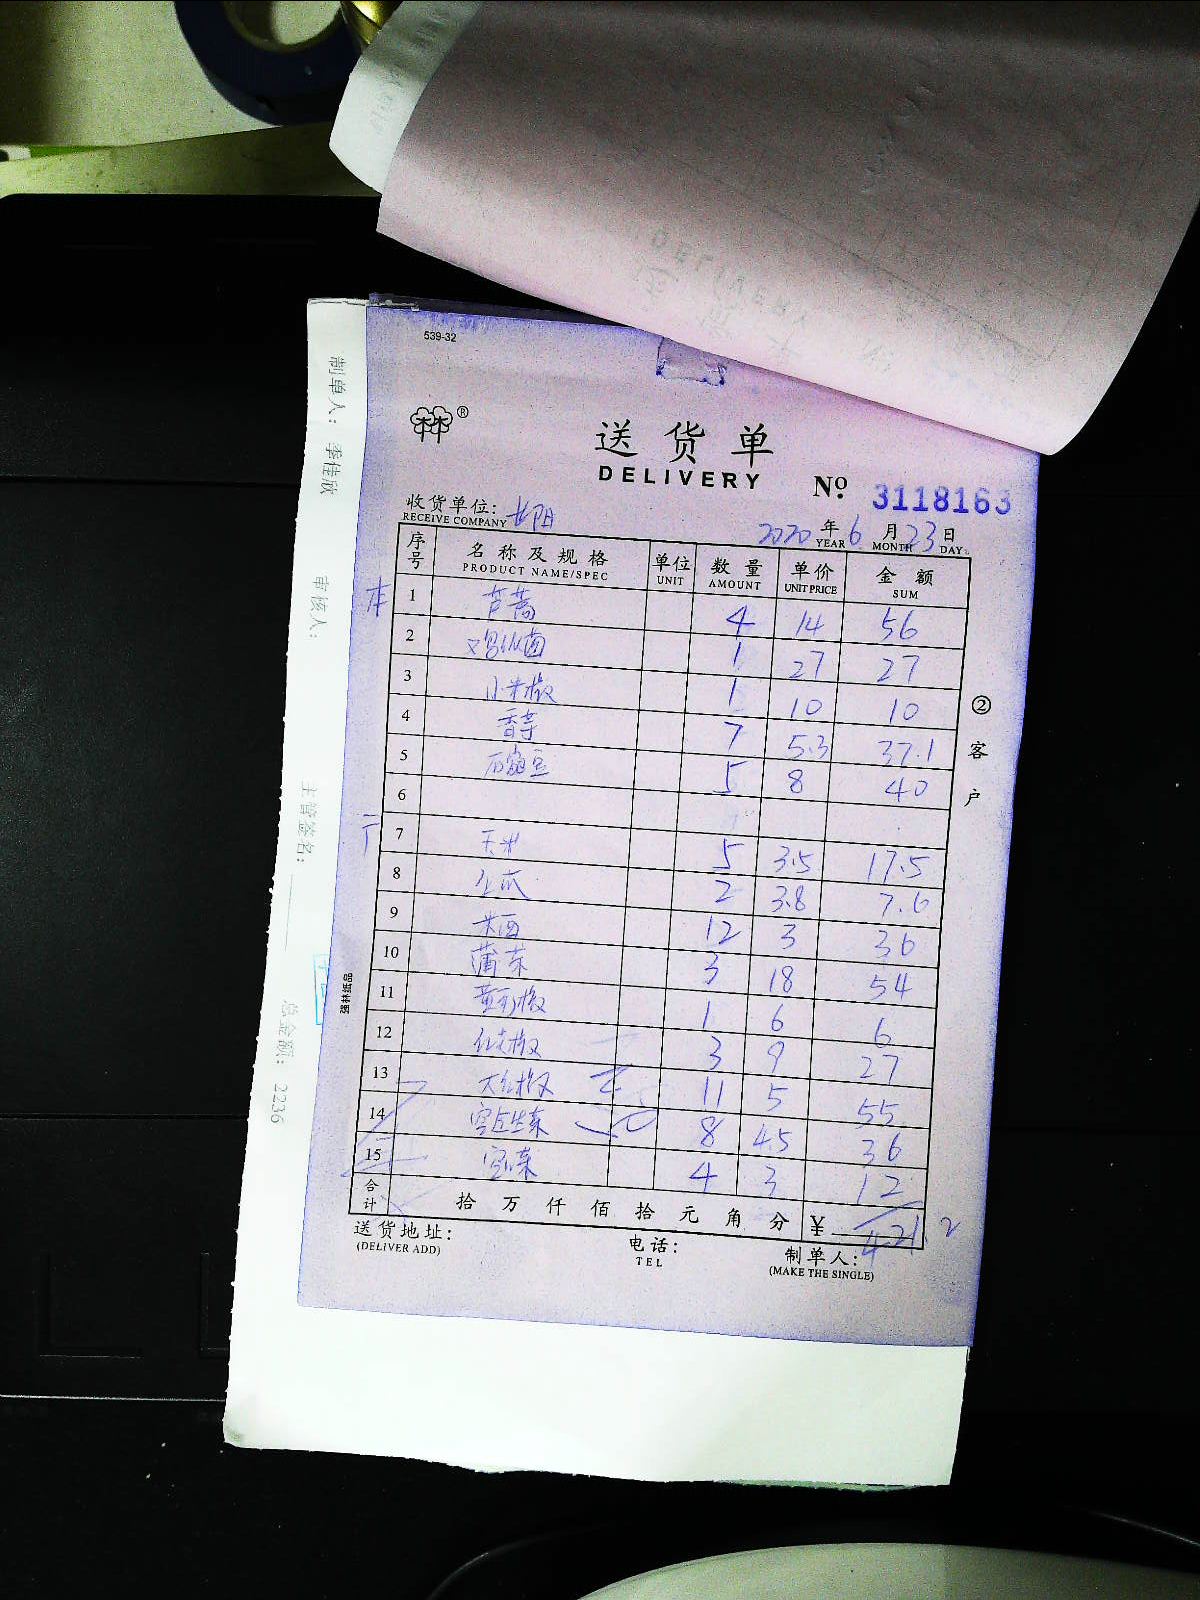 539-32
林®
送货单
DELIVERY
№ 3118163
收货单位: 长阳
RECEIVE COMPANY
2020 年 6 月 23 日
YEAR MONTH DAY
序号 名称及规格 单位 数量 单价 金额
PRODUCT NAME/SPEC UNIT AMOUNT UNIT PRICE SUM
本
1 芦蒿 4 14 56
2 鸡纵菌 1 27 27
3 小米椒 1 10 10
4 香芋 7 5.3 37.1
5 5 8 40
6
7 玉米 5 3.5 17.5
8 生瓜 2 3.8 7.6
9 米面 12 3 36
10 蒲菜 3 18 54
11 黄彩椒 1 6 6
12 3 9 27
13 大红椒 11 5 55
14 8 4.5 36
15 4 3 12
合计 拾 万 仟 佰 拾 元 角 分 ¥ 421.2
送货地址: 电话: 制单人:
(DELIVER ADD) TEL (MAKE THE SINGLE)
② 客户
强林纸品
制单人: 季佳欣
审核人:
主管签名:
总金额: 2236